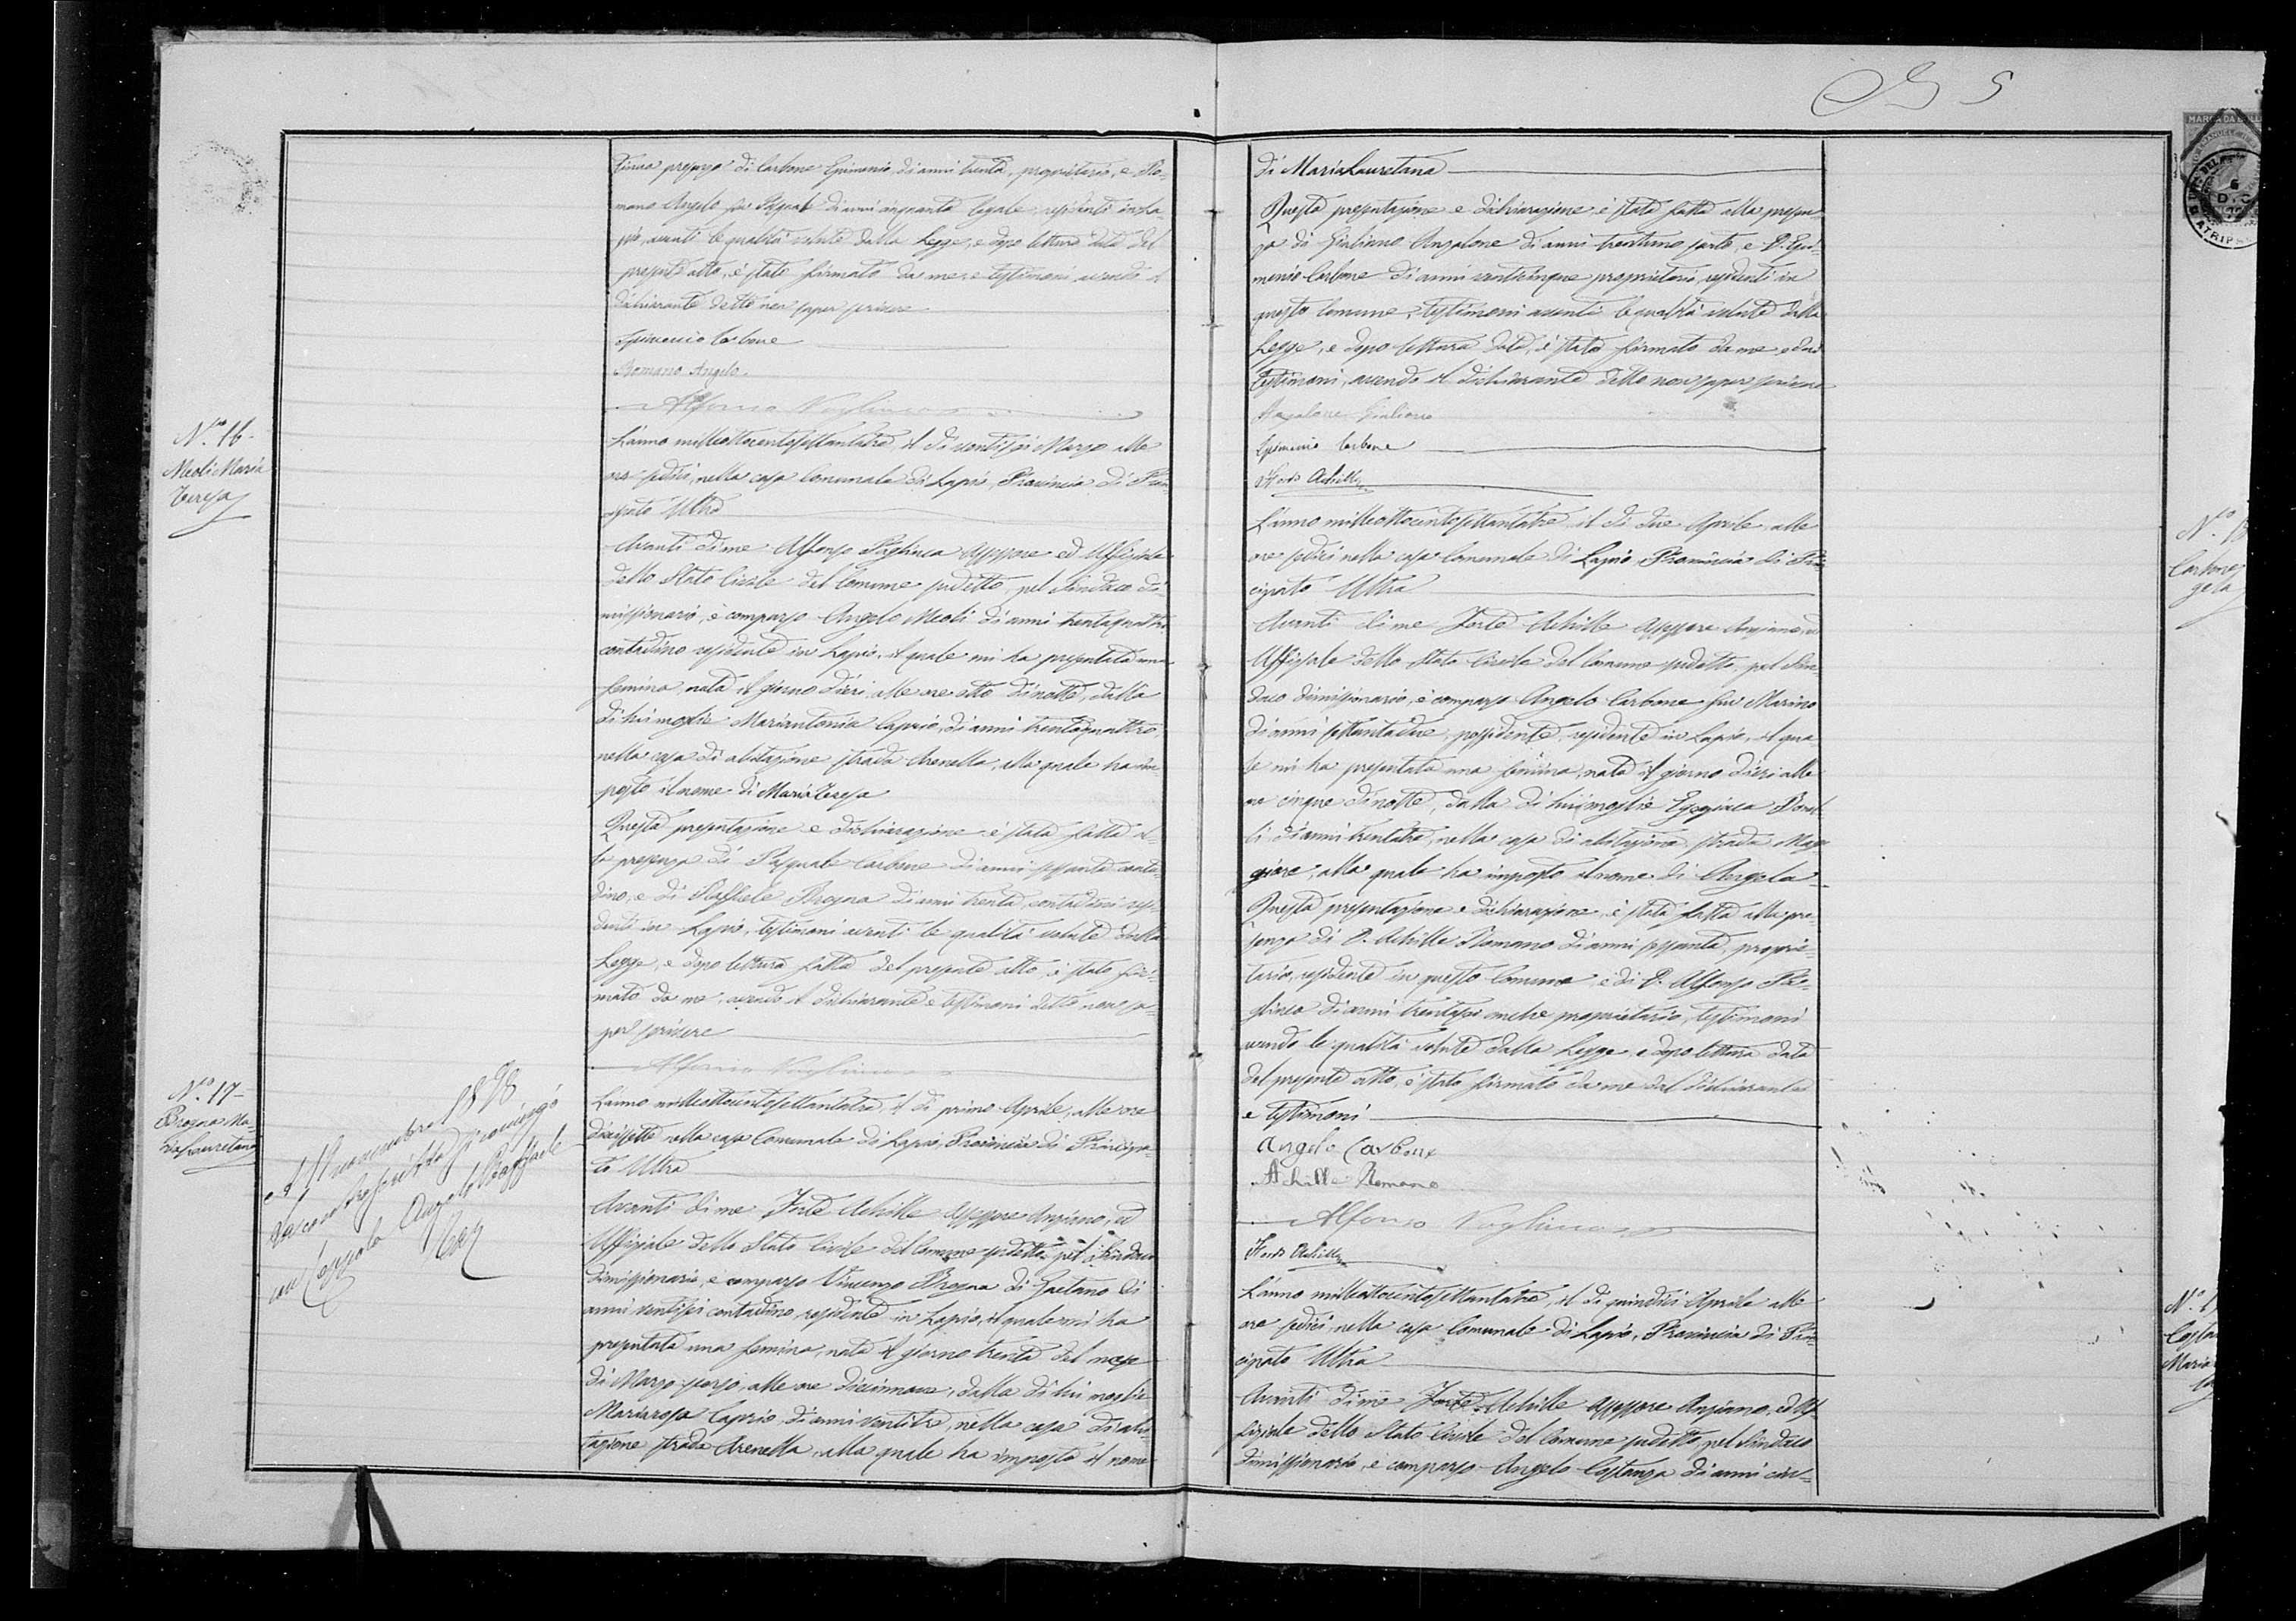 alla presenza di Carbone Epimenio, di anni trenta, proprietario, e Ro-
mano Angelo fu Pasquale di anni cinquanta legale, residenti in La-
pio, aventi le qualità volute dalla Legge, e dopo lettura data del
presente atto, è stato firmato da me, e testimoni, avendo il
dichiarante detto non saper scrivere
Epimenio Carbone
Romano Angelo
Alfonso
N.ro 16-
Meoli Maria
Teresa
L'anno milleottocentosettantatre, il di ventisei Marzo alle
ore sedici, nella casa Comunale di Lapio, Provincia di Prin-
cipato Ultra
Avanti di me Alfonso Pagliuca Assessore ed Uffiziale
dello Stato Civile del Comune sudetto, pel Sindaco di-
missionario, è comparso Angelo Meoli di anni trentaquattro
contadino residente in Lapio, il quale mi ha presentata una
femina, nata il giorno d'ieri alle ore otto di notte, dalla
di lui moglie Mariantonia Caprio, di anni trentaquattro,
nella casa di abitazione strada Arenella, alla quale ha im
posto il nome di Maria Teresa
Questa presentazione e dichiarazione è stata fatta al-
la presenza di Pasquale Carbone di anni sessanta conta-
dino, e di Raffaele Brogna di anni trenta, contadini resi-
denti in Lapio, testimoni aventi le qualità volute dalla
Legge, e dopo lettura fatta del presente atto è stato fir-
mato da me, avendo il dichiarante e testimoni detto non sa-
per scrivere
Alfonso
N.ro 17-
Brogna Ma-
ria Lauretana
novembre 1898
la controscritta si coniugò
con Coppola Angelo Raffaele
L'anno milleottocentosettantatre, il di primo Aprile, alle ore
diecisette nella casa Comunale di Lapio, Provincia di Principa-
to Ultra
Avanti di me Forte Achille Assessore Anziano, ed
Uffiziale dello Stato Civile del Comune sudetto pel Sindaco
dimissionario, è comparso Vincenzo Brogna di Gaetano di
anni ventisei contadino, residente in Lapio, il quale mi ha
presentata una femina, nata il giorno trenta del mese
di Marzo scorso, alle ore diecinnove, dalla di lui moglie
Mariarosa Caprio, di anni ventitre, nella casa di abi-
tazione strada Arenella, alla quale ha imposto il nome
5
MARCA DA BOLLO
di Maria Lauretana
Questa presentazione e dichiarazione è stata fatta alla presen
za di Giuliano Anzalone di anni trentuno sarto, e D. Epi-
menio Carbone di anni venticinque proprietario, residenti in
questo Comune, testimoni aventi le qualità volute dalla
Legge, e dopo lettura data, è stato firmato da me e dai
testimoni, avendo il dichiarante detto non saper scrivere
Anzalone Giuliano
Epimenio Carbone
Forte Achille
L'anno milleottocentosettantatre il di due Aprile alle
ore sedici nella casa Comunale di Lapio, Provincia di Prin
cipato Ultra
N.ro
Carbone
gela
Avanti di me Forte Achille Assessore Anziano, ed
Uffiziale dello Stato Civile del Comune sudetto, pel Sin-
daco dimissionario, è comparso Angelo Carbone fu Marino
di anni settantadue, possidente, residente in Lapio, il qua
le mi ha presentata una femina, nata il giorno d'ieri alle
ore cinque di notte, dalla di lui moglie Egiziaca
di anni trentatre, nella casa di abitazione, strada Mag
giore, alla quale ha imposto il nome di Angela
Questa presentazione e dichiarazione, è stata fatta alla pre-
senza di D. Achille Romano di anni sessanta, proprie-
tario, residente in questo Comune, e di D. Alfonso Pa-
gliuca di anni trentasei anche proprietario, testimoni
avendo le qualità volute dalla Legge, e dopo lettura data
del presente atto, è stato firmato da me dal dichiarante
e testimoni
Angelo Carbone
Achille Romano
Alfonso
Forte Achille
L'anno milleottocentosettantatre, il di quindici Aprile alle
ore sedici, nella casa Comunale di Lapio, Provincia di Prin-
cipato Ultra
N.o
Maria
Avanti di me Forte Achille Assessore Anziano, ed Uf
fiziale dello Stato Civile del Comune sudetto, pel Sindaco
dimissionario, è comparso Angelo Costanza di anni cin-